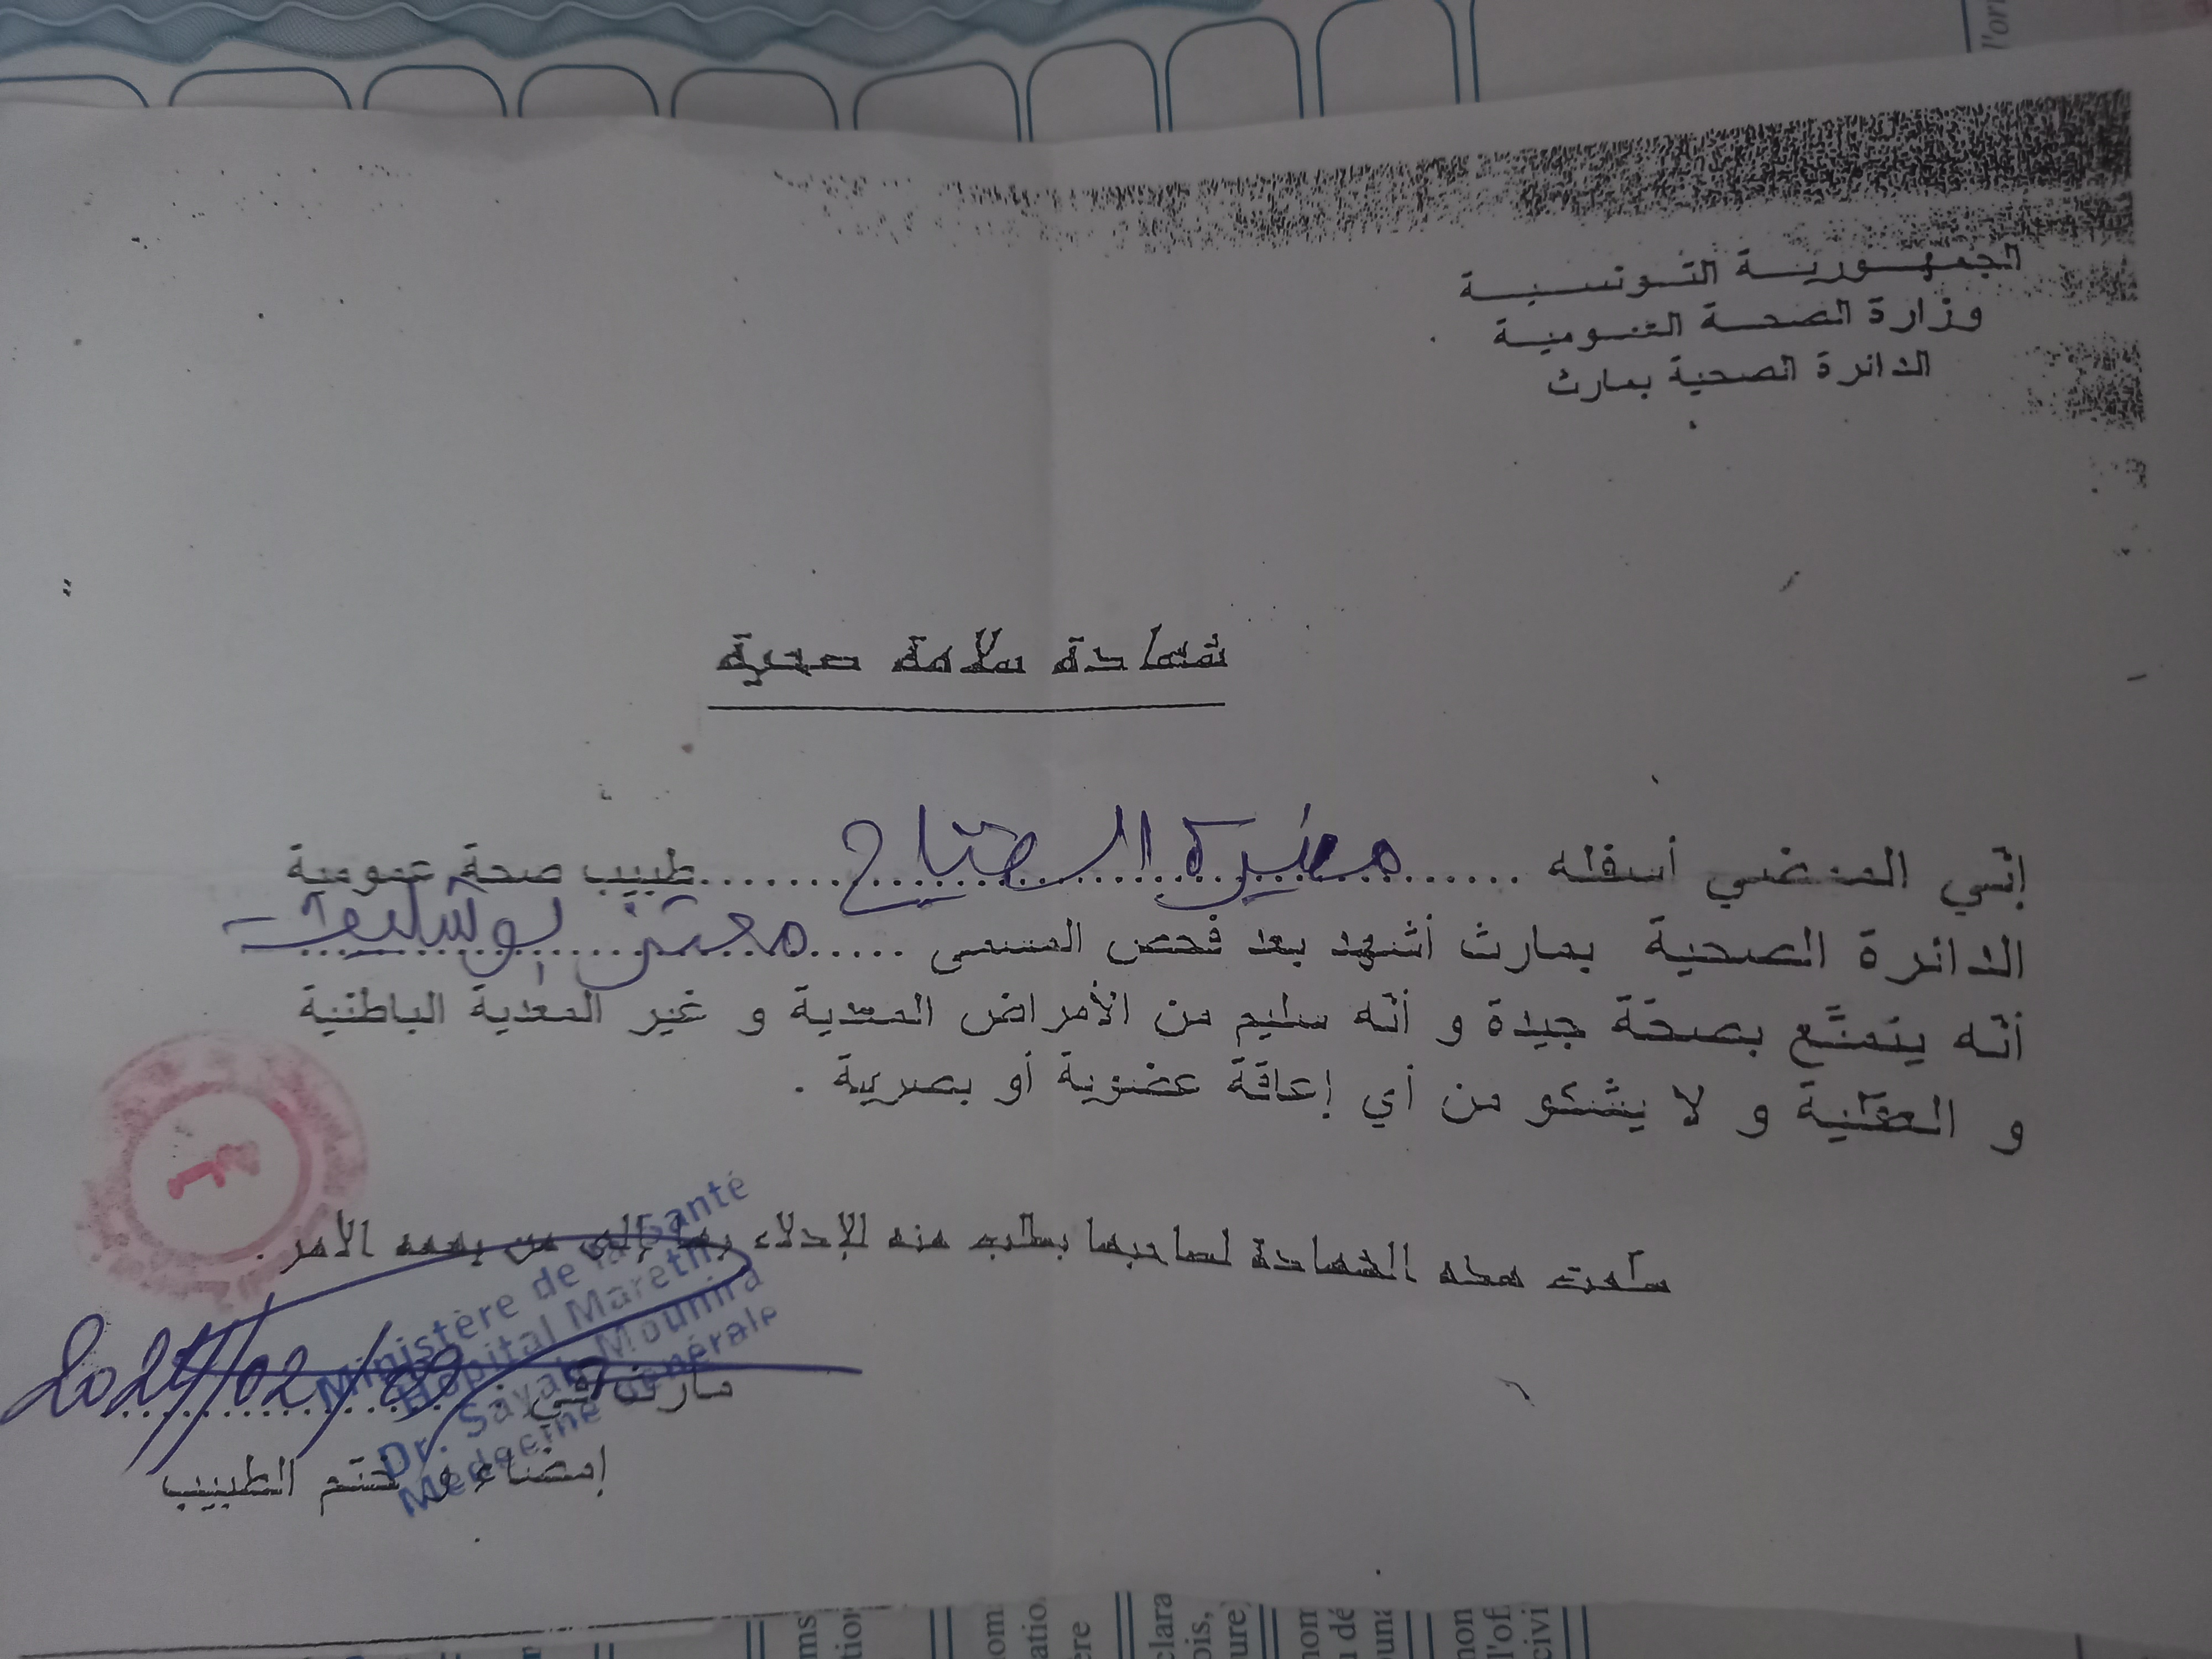 الجمهورية التونسية
وزارة الصحة العمومية
الدائرة الصحية بمارث
شهادة سلامة صحية
إنّي الممضي أسفله ............ منيرة الصياح ............ طبيب صحة عمومية
الدائرة الصحية بمارث أشهد بعد فحص المسمى ..... معتز بوشليف
أنّه يتمتّع بصحّة جيدة و أنّه سليم من الأمراض المعدية و غير المعدية الباطنية
و العقلية و لا يشكو من أي إعاقة عضوية أو بصرية .
سلّمت هذه الشهادة لصاحبها بطلب منه للإدلاء بها إلى من يهمه الأمر .
Ministère de la Santé
Hôpital Mareth
Dr. Sayah Mounira
Médecine Générale
مارث في :
إمضاء و ختم الطبيب